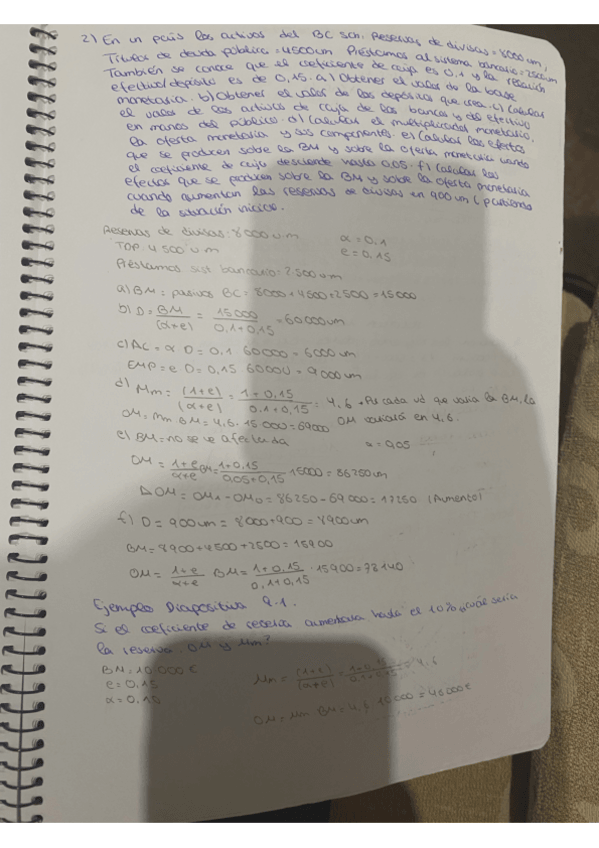 2) En un país los activos del BC son: Reservas de divisas = 8000 um,
Títulos de deuda pública = 4500 um Préstamos al sistema bancario = 2500 um
También se conoce que el coeficiente de caja es 0,1 y la relación
efectivo/depósito es de 0,15. a) Obtener el valor de la base
monetaria. b) Obtener el valor de los depósitos que crea. c) Calcular
el valor de los activos de caja de los bancos y del efectivo
en manos del público. d) Calcular el multiplicador monetario,
la oferta monetaria y sus componentes. e) Calcular los efectos
que se producen sobre la BM y sobre la oferta monetaria cuando
el coeficiente de caja desciende hasta 0,05. f) Calcular los
efectos que se producen sobre la BM y sobre la oferta monetaria
cuando aumentan las reservas de divisas en 900 um (partiendo
de la situación inicial.
Reservas de divisas: 8000 u.m α = 0.1
TDP: 4500 u m e = 0.15
Préstamos sist. bancario = 2.500 um
a) BM = pasivos BC = 8000 + 4500 + 2500 = 15000
b) D = BM/(α+e) = 15000/0.1+0,15 = 60000 um
c) AC = α D = 0.1 60000 = 6000 um
EMP = e D = 0,15 60000 = 9000 um
d) Mm = (1+e)/(α+e) = 1+0,15/0.1+0,15 = 4,6 → Por cada ud que varía la BM, la
OM = mm BM = 4,6 · 15000 = 69000 OM variará en 4,6.
e) BM = no se ve afectada α = 0,05
OM = 1+e/α+e BM = 1+0,15/0,05+0,15 15000 = 86250 um
Δ OM = OM1 - OM0 = 86250 - 69000 = 17250 (Aumento)
f) D = 900 um = 8000 + 900 = 8900 um
BM = 8900 + 4500 + 2500 = 15900
OM = 1+e/α+e BM = 1+0,15/0,1+0,15 · 15900 = 73140
Ejemplo Diapositiva 9.1.
Si el coeficiente de reserva aumentara hasta el 10% ¿cuál sería
la reserva, OM y Mm?
BM: 10.000 € Mm = (1+e)/(α+e) = 1+0.15/0.1+0.15 = 4,6
e = 0,15
α = 0,10 OM = Mm · BM = 4,6 · 10000 = 46000 €